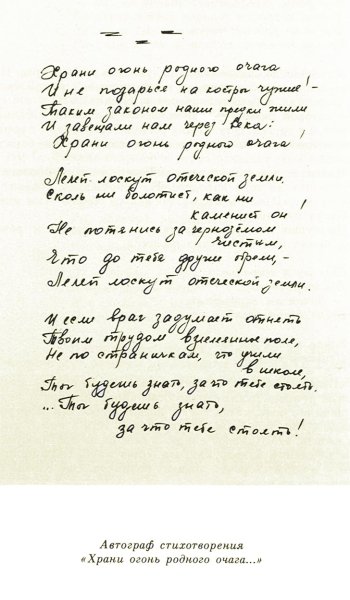 Храни огонь родного очага
И не позарься на костры чужие! –
Таким законом наши предки жили
И завещали нам через века:
Храни огонь родного очага!
Лелей лоскут отеческой земли.
Сколь ни болотист, как ни
каменист он!
Не потянись за чернозёмом
чистым,
Что до тебя другие обрели, –
Лелей лоскут отеческой земли.
И если враг задумает отнять
Твоим трудом взлелеянное поле,
Не по страничкам, что учили
в школе,
Ты будешь знать, за что тебе стоять.
...Ты будешь знать,
за что тебе стоять!
Автограф стихотворения
«Храни огонь родного очага...»